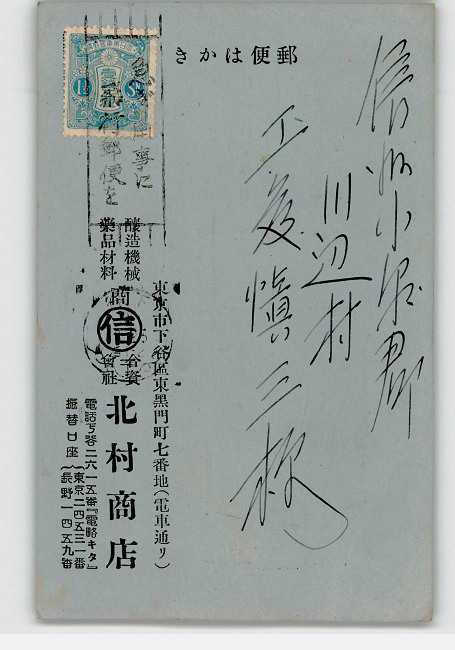 郵便はかき
信州小県郡
川辺村
工藤慎三様
東京市下谷區東黑門町七番地(電車通リ)
釀造機械
藥品材料
商
信
合資
會社
北村商店
電話下谷二六一五番『電略キタ』
振替口座
東京二四五三一番
長野一四五九番
郵便を
事に